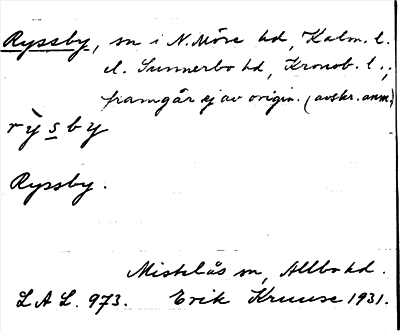 Ryssby, sn i N. Möre hd, Kalm. l.
el. Sunnerbo hd, Kronob. l.;
framgår ej av origin. (avskr. anm.)
rỳsby
Ryssby.
Mistelås sn, Allbo hd.
L A L. 973. Erik Kruuse 1931.